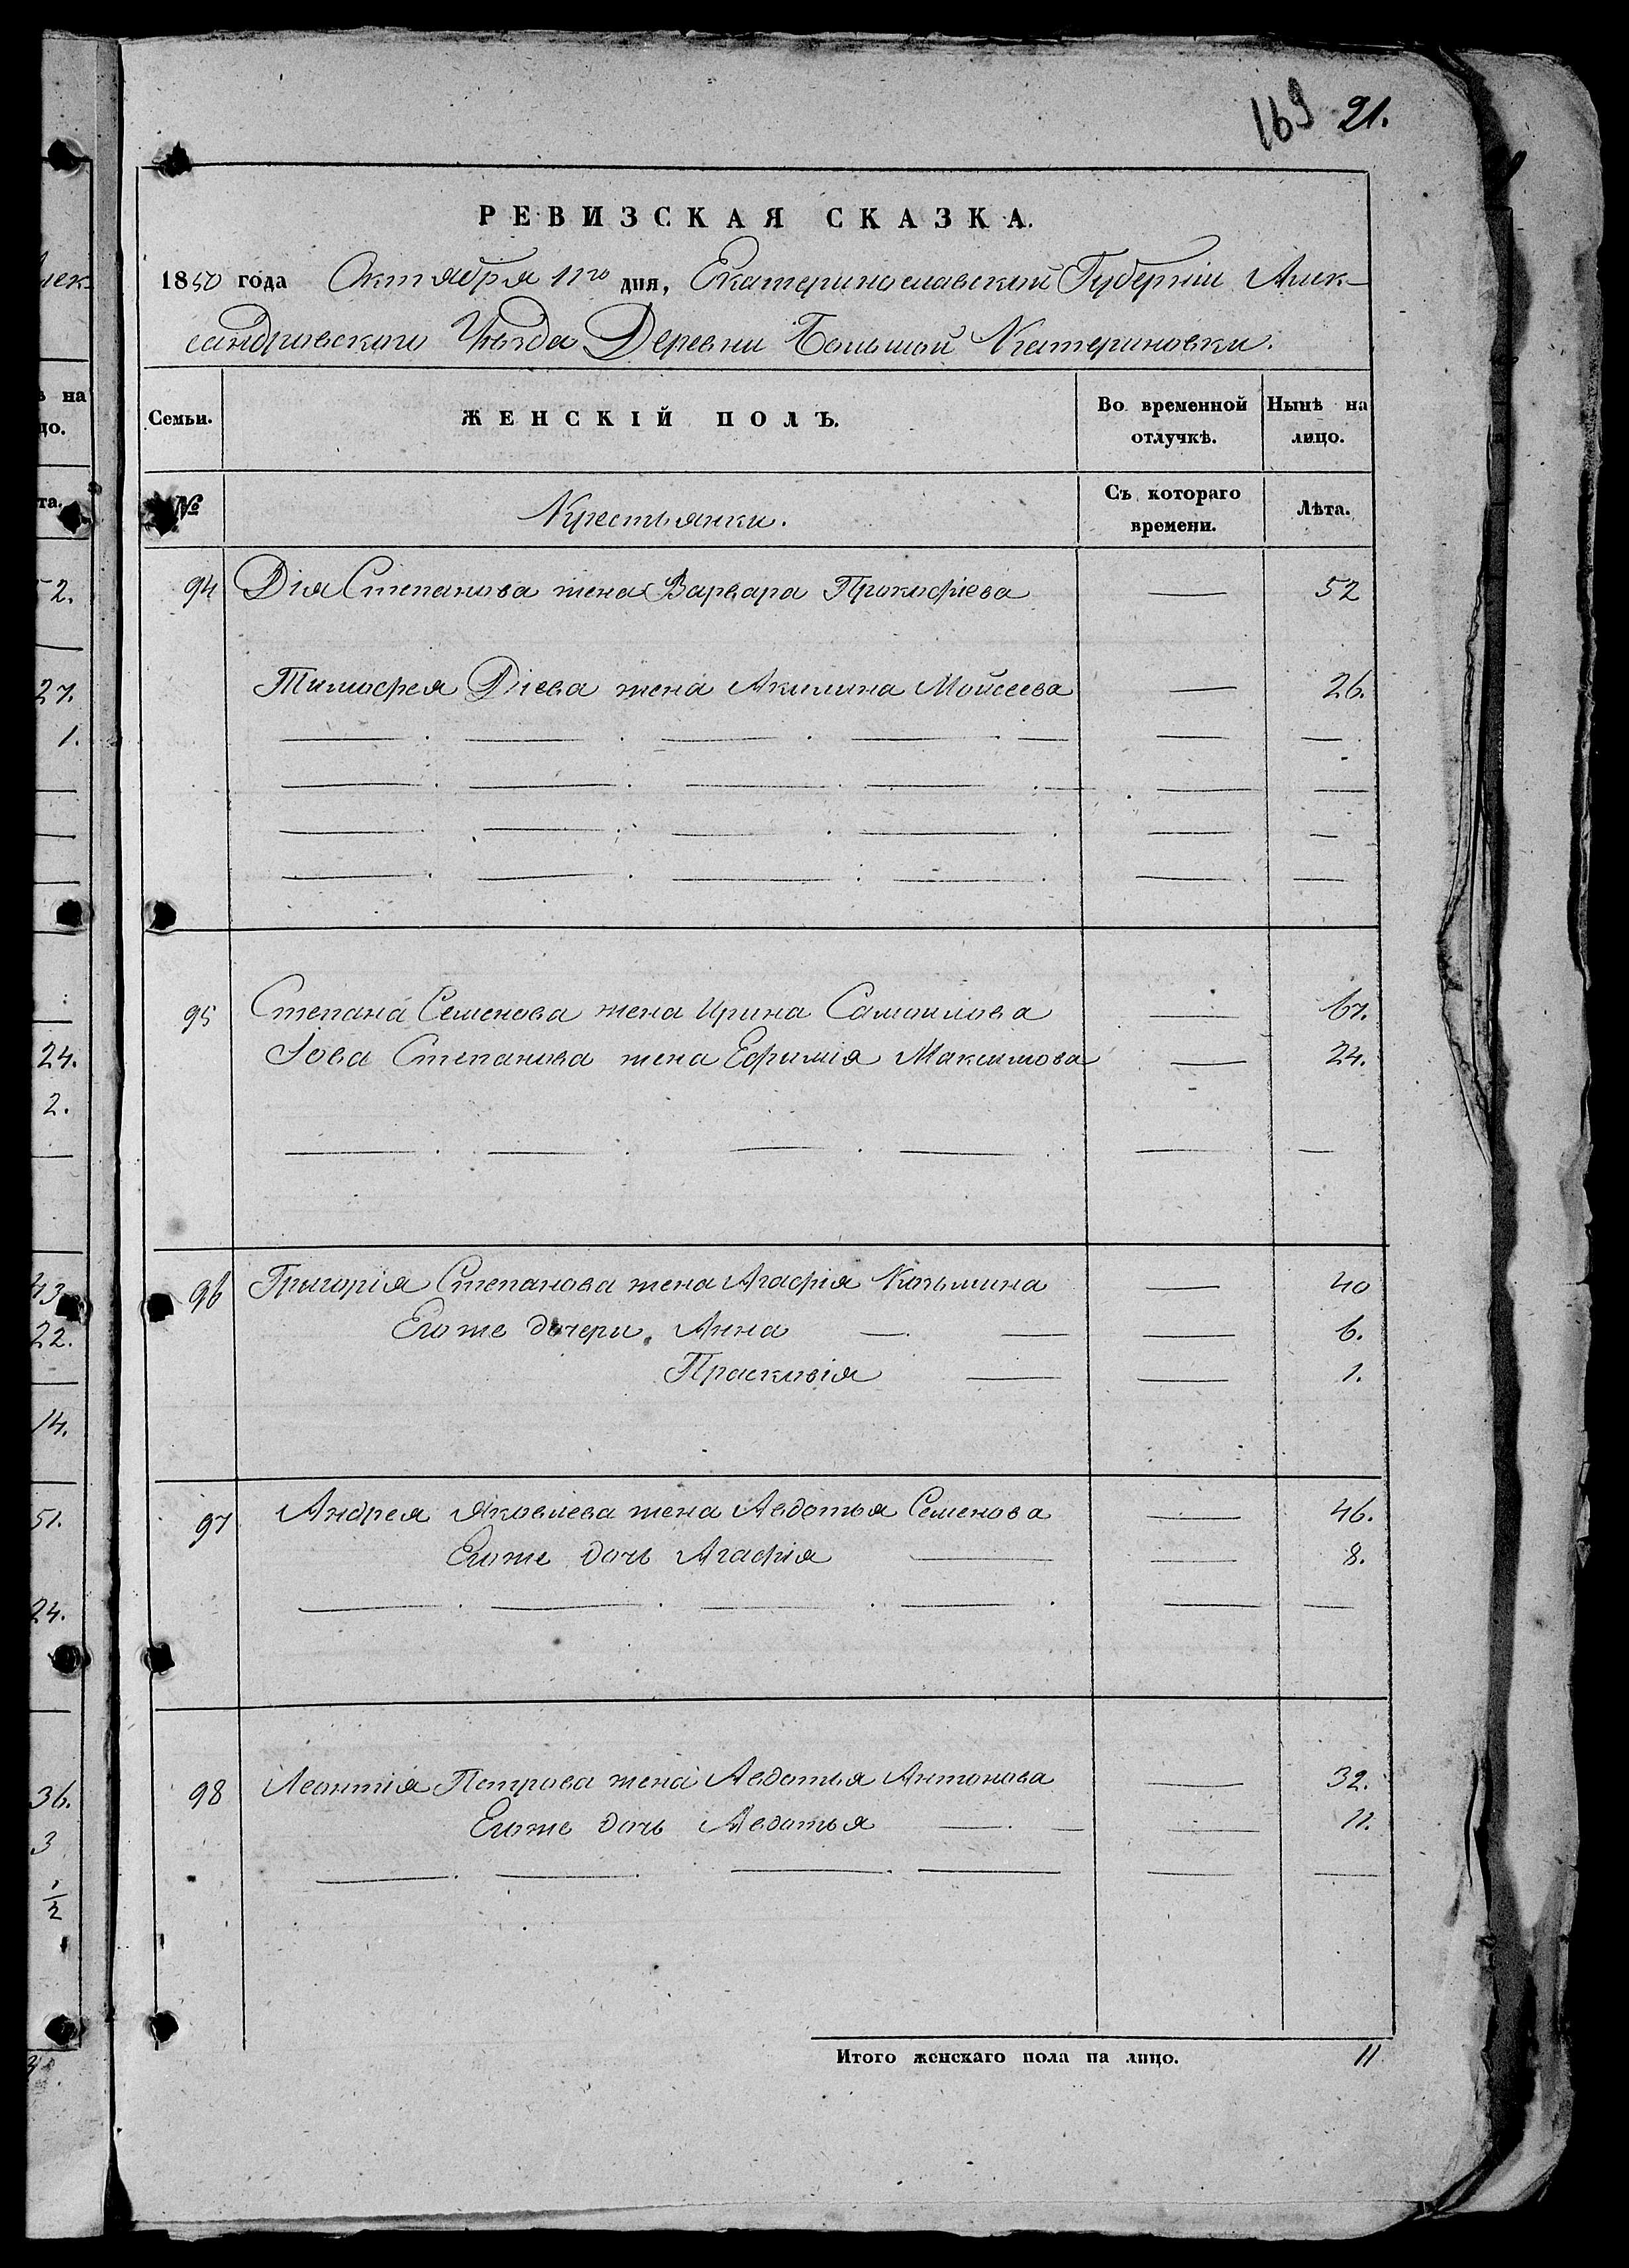 169 21.
РЕВИЗСКАЯ СКАЗКА.
1850 года Октября 11го дня, Екатеринославской Губерніи Алек-
сандровскаго Уѣзда Деревни Большой Катериновки.
Семьи. ЖЕНСКІЙ ПОЛЪ. Во временной отлучкѣ. Нынѣ на лицо.
№ Крестьянки. Съ котораго времени. Лѣта.
94 Дія Степанова жена Варвара Прокофіева — 52
Тимофея Діева жена Акилина Мойсеева — 26.
95 Степана Семенова жена Ирина Самоилова — 67.
Іова Степанова жена Ефимія Максимова — 24.
96 Григорія Степанова жена Агафія Козьмина — 40
Егоже дочери, Анна — — — 6.
Прасковія — — 1.
97 Андрея Яковлева жена Авдотья Семенова — 46.
Егоже дочь Агафія — — 8.
98 Леонтія Петрова жена Авдотья Антонова — 32.
Егоже дочь Авдотья — — — 11.
Итого женскаго пола на лицо. 11
лек-
ѣ на
цо.
та.
52.
27.
1.
24.
2.
43
22.
14.
51.
24.
36.
3
1/2